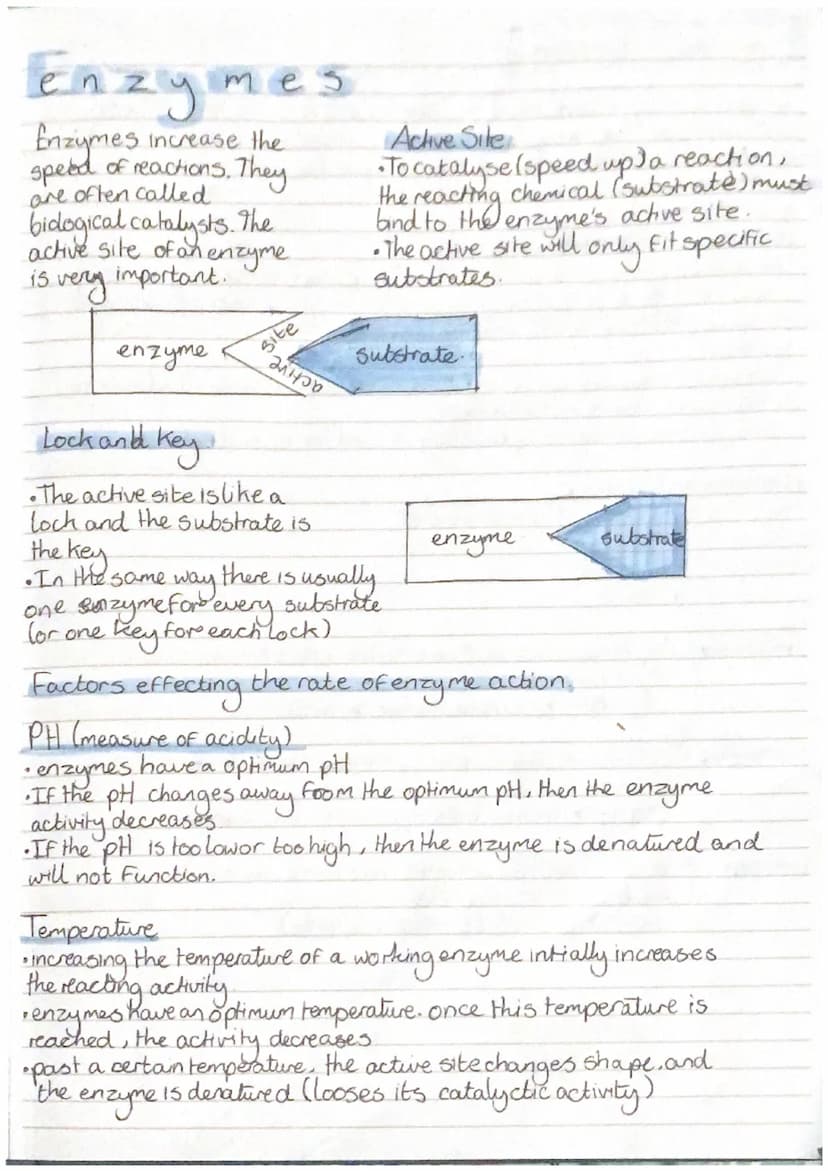 Enzymes
Enzymes increase the
speed of reactions. They
are often called
biological catalysts. The
active site of an enzyme
is very important.
Active Site
•To catalyse (speed up) a reaction,
the reacting chemical (substrate) must
bind to the enzyme's active site.
•The active site will only fit specific
substrates.
enzyme
active site
substrate.
Lock and Key
•The active site is like a
loch and the substrate is
the key
•In the same way there is usually
one enzyme for every substrate
(or one key for each lock)
enzyme
substrate
Factors effecting the rate of enzyme action.
PH (measure of acidity)
•enzymes have a optimum pH
•If the pH changes away from the optimum pH, then the enzyme
activity decreases
•If the pH is too low or too high, then the enzyme is denatured and
will not function.
Temperature
•increasing the temperature of a working enzyme intially increases
the reacting activity
•enzymes have an optimum temperature. once this temperature is
reached, the activity decreases
•past a certain temperature, the active site changes shape, and
the enzyme is denatured (looses its catalyctic activity)